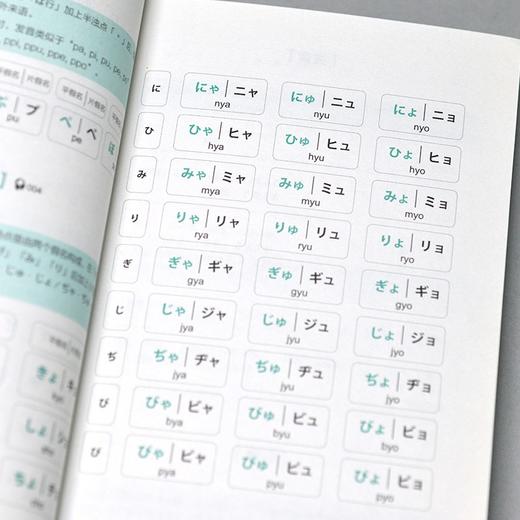 外来语。
, 发音类似于"pa, pi, pu, pe, po"
, ppi, ppu, ppe, ppo"。
平假名 片假名 平假名 片假名
プ
pu
ぺ ペ
pe
004
に
にゃ ニャ
nya
にゅ ニュ
nyu
にょ ニョ
nyo
ひ
ひゃ ヒャ
hya
ひゅ ヒュ
hyu
ひょ ヒョ
hyo
み
みゃ ミャ
mya
みゅ ミュ
myu
みょ ミョ
myo
り
りゃ リャ
rya
りゅ リュ
ryu
りょ リョ
ryo
ぎ
ぎゃ ギャ
gya
ぎゅ ギュ
gyu
ぎょ ギョ
gyo
じ
じゃ ジャ
jya
じゅ ジュ
jyu
じょ ジョ
jyo
ぢ
ぢゃ ヂャ
jya
ぢゅ ヂュ
jyu
ぢょ ヂョ
jyo
び
びゃ ビャ
bya
びゅ ビュ
byu
びょ ビョ
byo
ぴゃ ピャ
pya
ぴゅ ピュ
pyu
ぴょ ピョ
pyo
きょ
しょ
ちょ